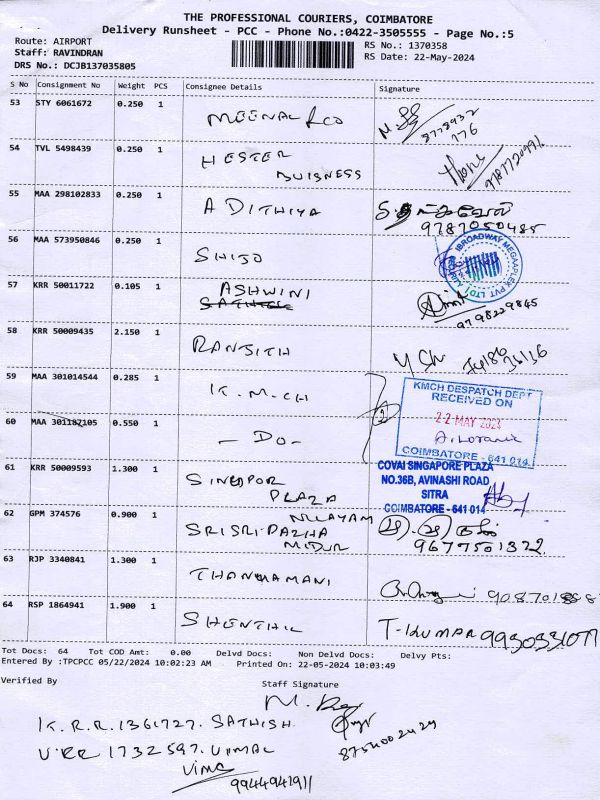 THE PROFESSIONAL COURIERS, COIMBATORE
Delivery Runsheet - PCC - Phone No.:0422-3505555 - Page No.:5
Route: AIRPORT
Staff: RAVINDRAN
DRS No.: DCJB137035805
RS No.: 1370358
RS Date: 22-May-2024
S No Consignment No Weight PCS Consignee Details Signature
53 STY 6061672 0.250 1 MEENAL & CO
54 TVL 5498439 0.250 1 HESTER BUISNESS 9787720991
55 MAA 298102833 0.250 1 ADITHIYA 9787050485
56 MAA 573950846 0.250 1 SHIJO
57 KRR 50011722 0.105 1 ASHWINI 9798229845
58 KRR 50009435 2.150 1 RANJITH
59 MAA 301014544 0.285 1 K.M.CH
KMCH DESPATCH DEPT
RECEIVED ON
22 MAY 2024
COIMBATORE - 641 014
60 MAA 301187105 0.550 1 - DO -
61 KRR 50009593 1.300 1 SINGPOR PLAZA
COVAI SINGAPORE PLAZA
NO.36B, AVINASHI ROAD
SITRA
COIMBATORE - 641 014
62 GPM 374576 0.900 1 SRISRI-PAZHA NILAYAM 9677501322
63 RJP 3340841 1.300 1 THANGAMANI
64 RSP 1864941 1.900 1 SHENTHIL T-KUMAR
Tot Docs: 64 Tot COD Amt: 0.00 Delvd Docs: Non Delvd Docs: Delvy Pts:
Entered By :TPCPCC 05/22/2024 10:02:23 AM Printed On: 22-05-2024 10:03:49
Verified By
Staff Signature
K.R.R. 1361727. SATHISH
8754002429
V.RR 1732597. VIMAL
9944941911